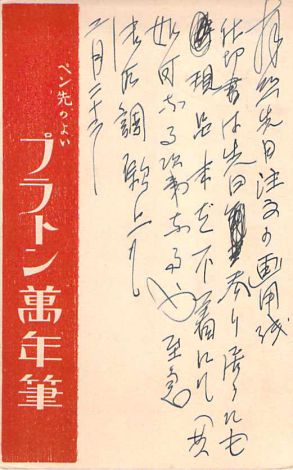 拝啓先日注文の画用紙
仕切書は先日参り居り候も
現品未だ不着に
如何なる次第なるや至急
御取調願上候
二月二十三日
ペン先のよい
プラトン萬年筆